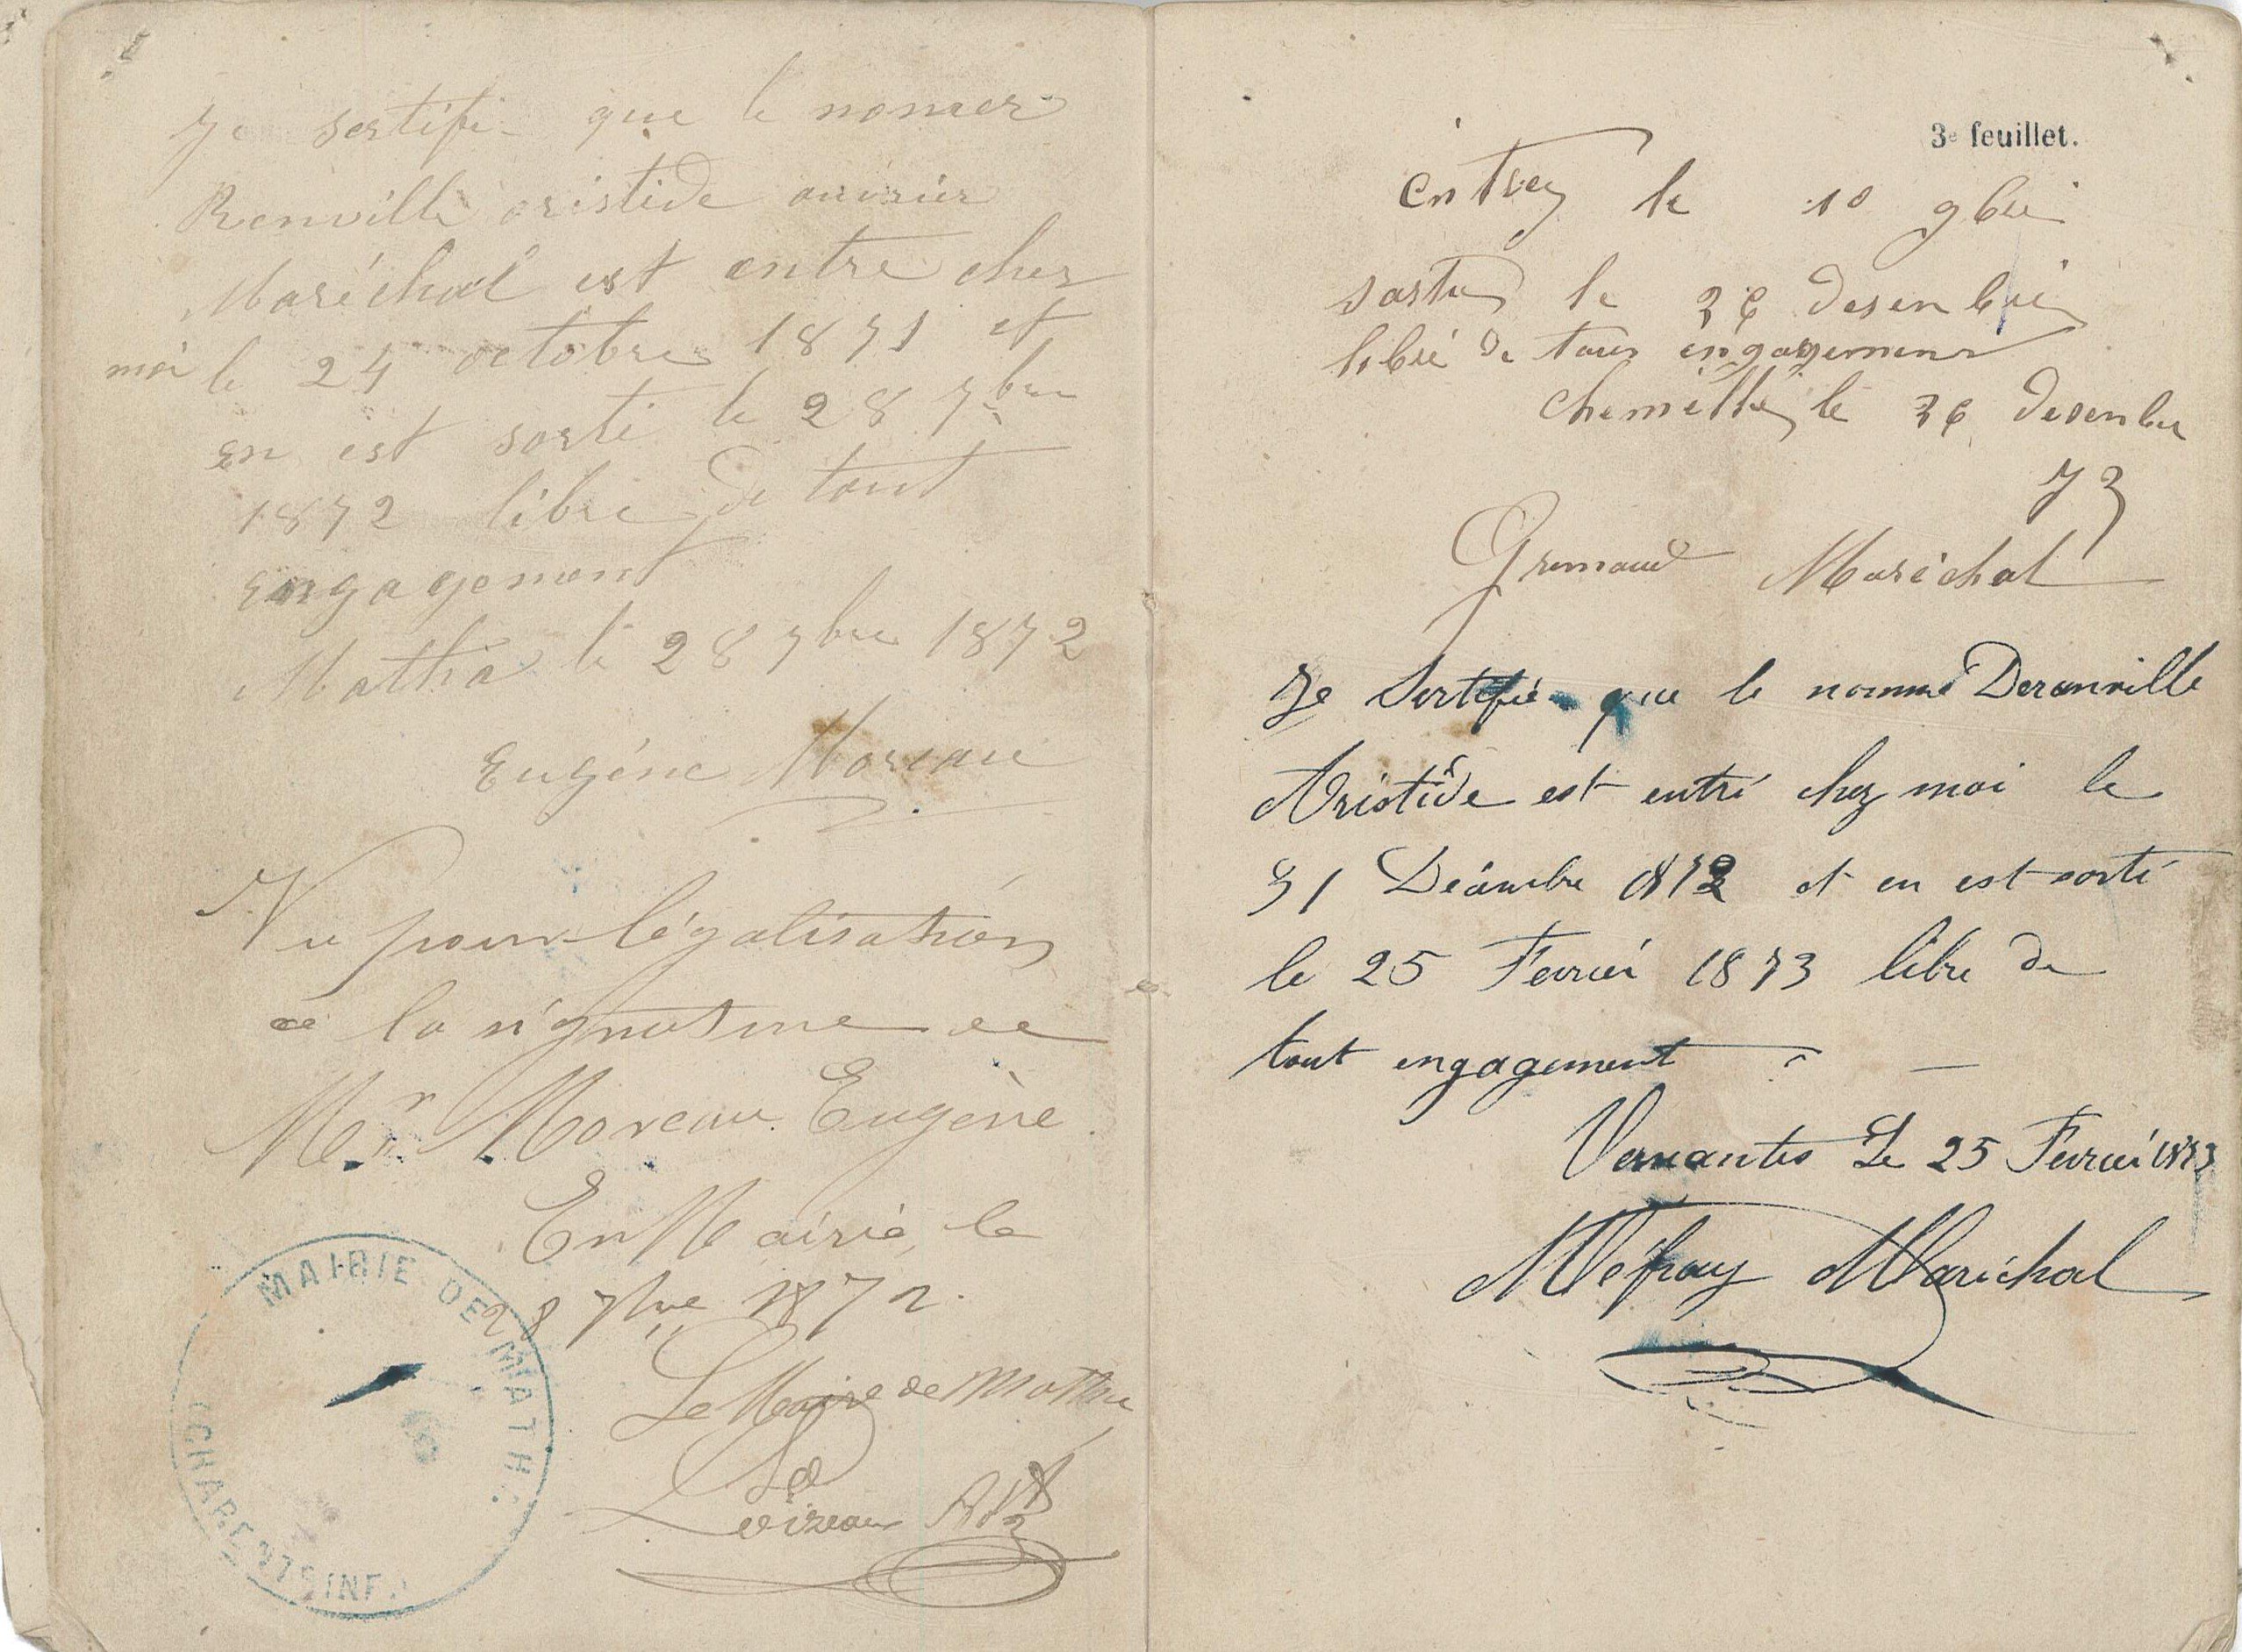 Je sertifi que le nomer
Renville aristide ouvrier
Maréchal est entre cher
moi le 24 octobre 1871 et
en est sorti le 28 7bre
1872 libre de tout
engagement
Matha le 28 7bre 1872
Eugéne Moreau
Vu pour légalisation
de la signature de
Mr Moreau Eugène
En Mairie, le
28 7bre 1872.
Le Maire de Matha
Loizeau
MAIRIE DE MATHA
(CHARENTE INFRE)
3e feuillet.
Entrey le 10 9bre
sortie le 26 desenbre
libre de tous engagemens
Chemillé le 26 desenbre
73
Gremaud Maréchal
Je Sertifie que le nommé Deranville
Aristide est entré chez moi le
31 Décembre 1872 et en est sorti
le 25 Fevrier 1873 libre de
tout engagement
Vernantes Le 25 Fevrier 1873
Méfray Maréchal